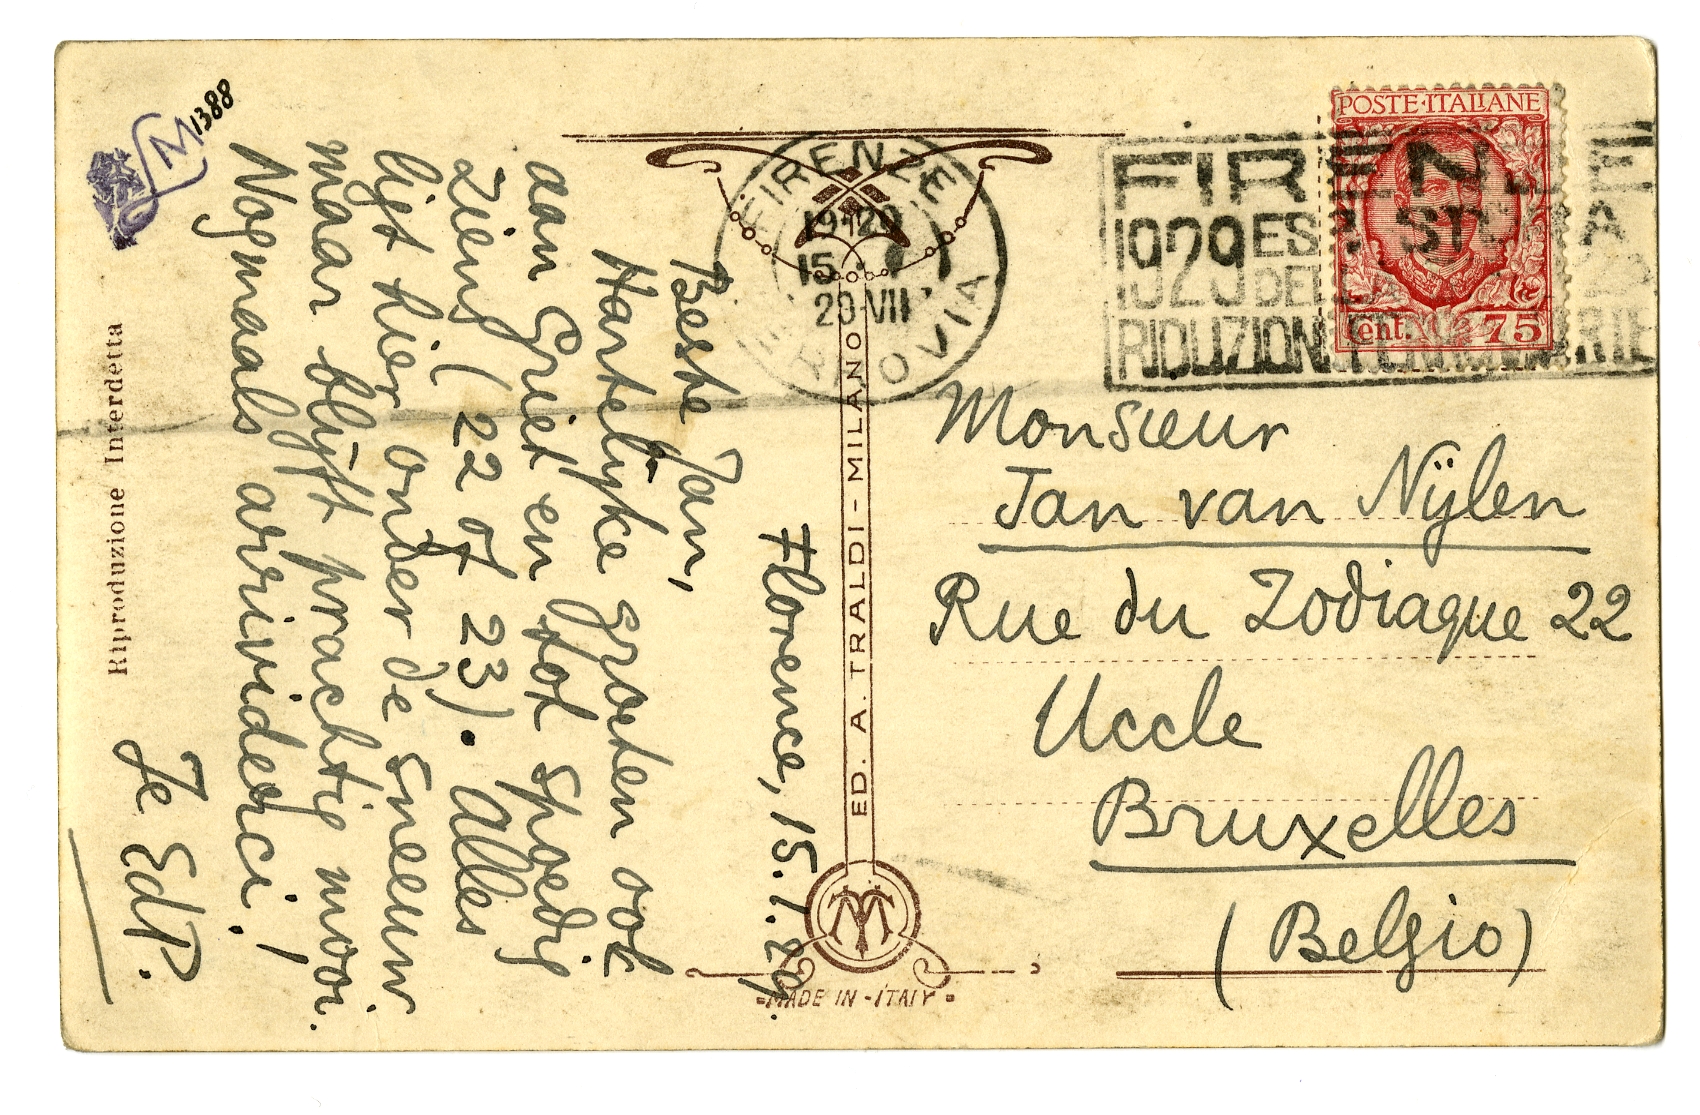 M 1388
Florence, 15.7.29.
Beste Jan,
Hartelijke groeten ook
aan Griet en tot spoedig
ziens (22 of 23). Alles
ligt hier onder de sneeuw
maar blijft prachtig mooi.
Nogmaals arrividerci!
Je EdP.
Riproduzione Interdetta
FIRENZE
19-20
15
29·VII
FERROVIA
ED. A. TRALDI - MILANO
MADE IN ITALY
POSTE·ITALIANE
Cent. 75
FIRENZE
1929 ESTATE
1929 DELLA
RIDUZIONI FERROVIARIE
Monsieur
Jan van Nijlen
Rue du Zodiaque 22
Uccle
Bruxelles
(Belgio)